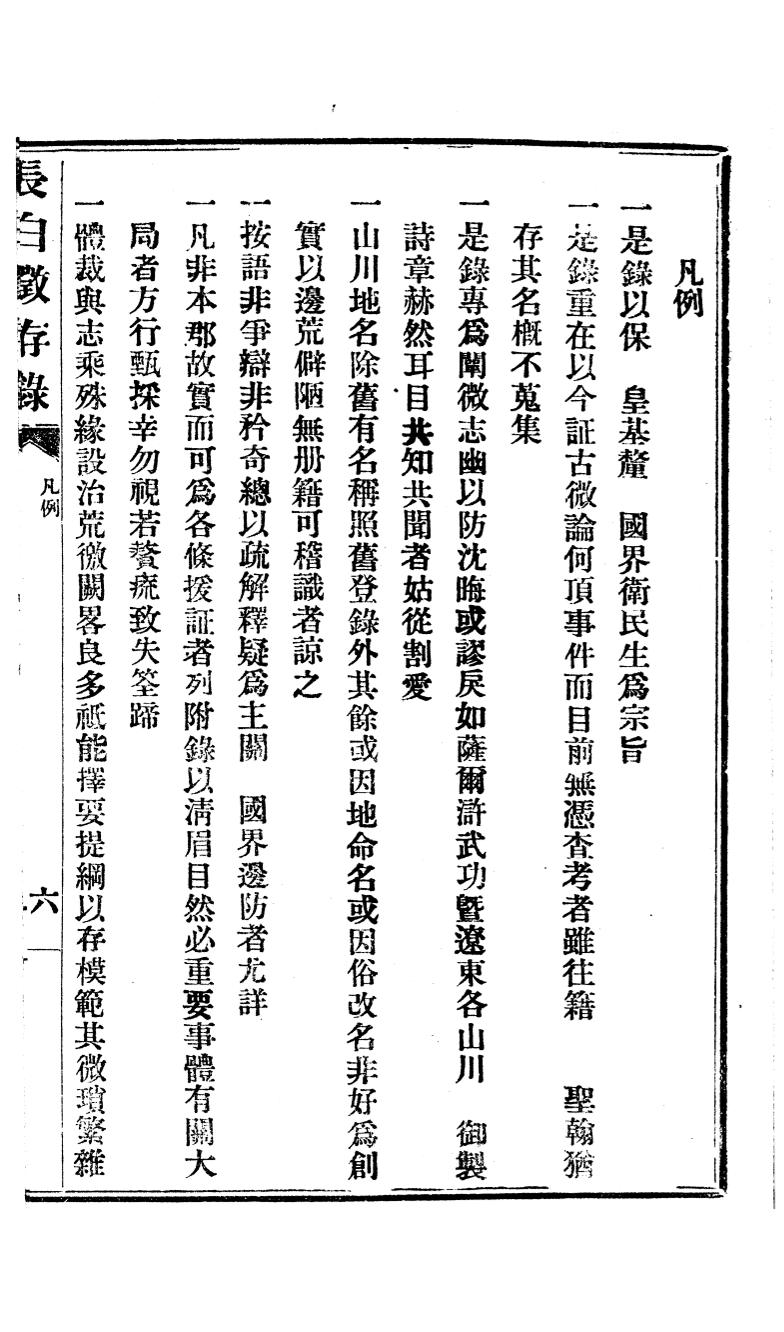 凡例
一是錄以保　皇基釐　國界衛民生爲宗旨
一是錄重在以今証古微論何項事件而目前無憑査考者雖往籍　聖翰猶
存其名槪不蒐集
一是錄專爲闡微志幽以防沈晦或謬戾如薩爾滸武功曁遼東各山川　御製
詩章赫然耳目共知共聞者姑從割愛
一山川地名除舊有名稱照舊登錄外其餘或因地命名或因俗改名非好爲創
實以邊荒僻陋無册籍可稽識者諒之
一按語非爭辯非矜奇總以疏解釋疑爲主關　國界邊防者尤詳
一凡非本郡故實而可爲各條援証者列附錄以淸眉目然必重要事體有關大
局者方行甄採幸勿視若贅疣致失筌蹄
一體裁與志乘殊緣設治荒徼闕畧良多祗能擇要提綱以存模範其微瑣繁雜
長白徵存錄
凡例
六